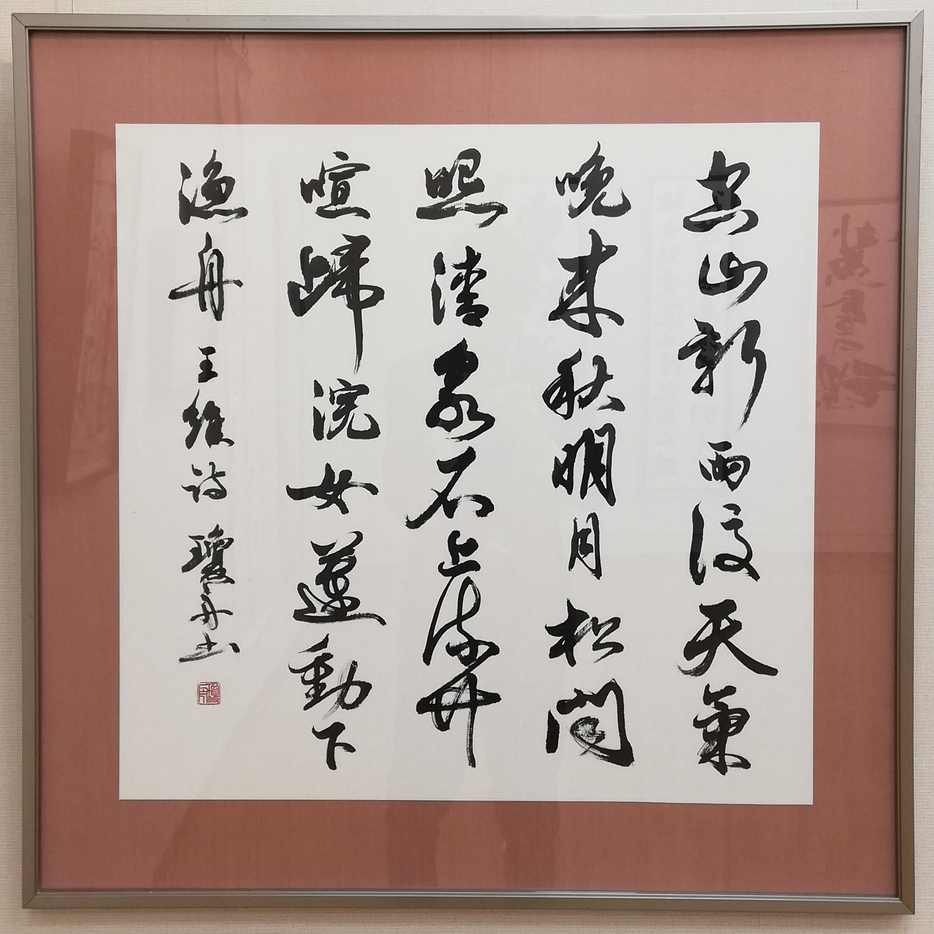 空山新雨後天氣
晚来秋明月松間
照清泉石上流竹
喧歸浣女蓮動下
漁舟 王維詩 瓊舟書